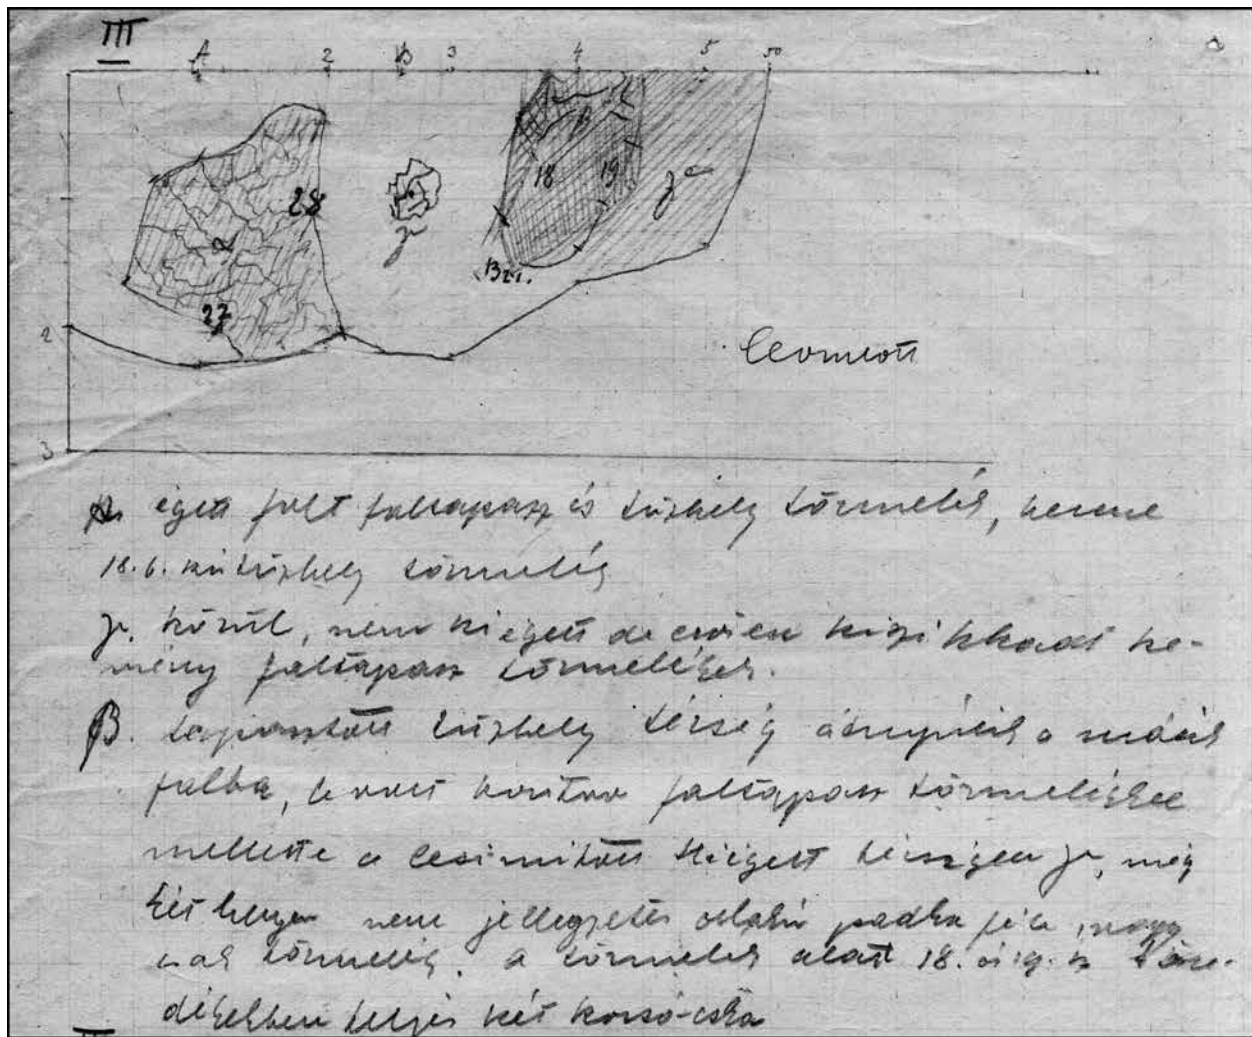 III
A 2 B 3 4 5 50
18 19
28
α
γ
γ
B21.
27
2
Leomlott
3
A. égett folt faltapasz és tűzhely törmelék, benne
18.6. tűzhely törmelék
γ. körül, nem kiégett de erősen kiszikkadt ke-
mény faltapasz törmelékek.
β. tapasztott tűzhely térség átnyúlik a másik
falba, le volt borítva faltapasz törmelékkel
mellette a lesimított kiégett térségen γ, még
két helyen nem jellegzetes oldalú padka féle, vagy
csak törmelék. a törmelék alatt 18. és 19. sz. töre-
dékekben teljes két korsócska
III